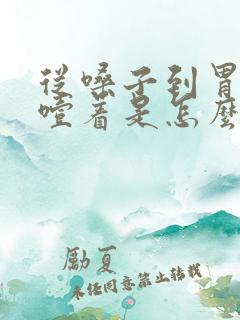 從嗓子到胃
噎着是怎麽
勵夏
未經同意禁止轉載